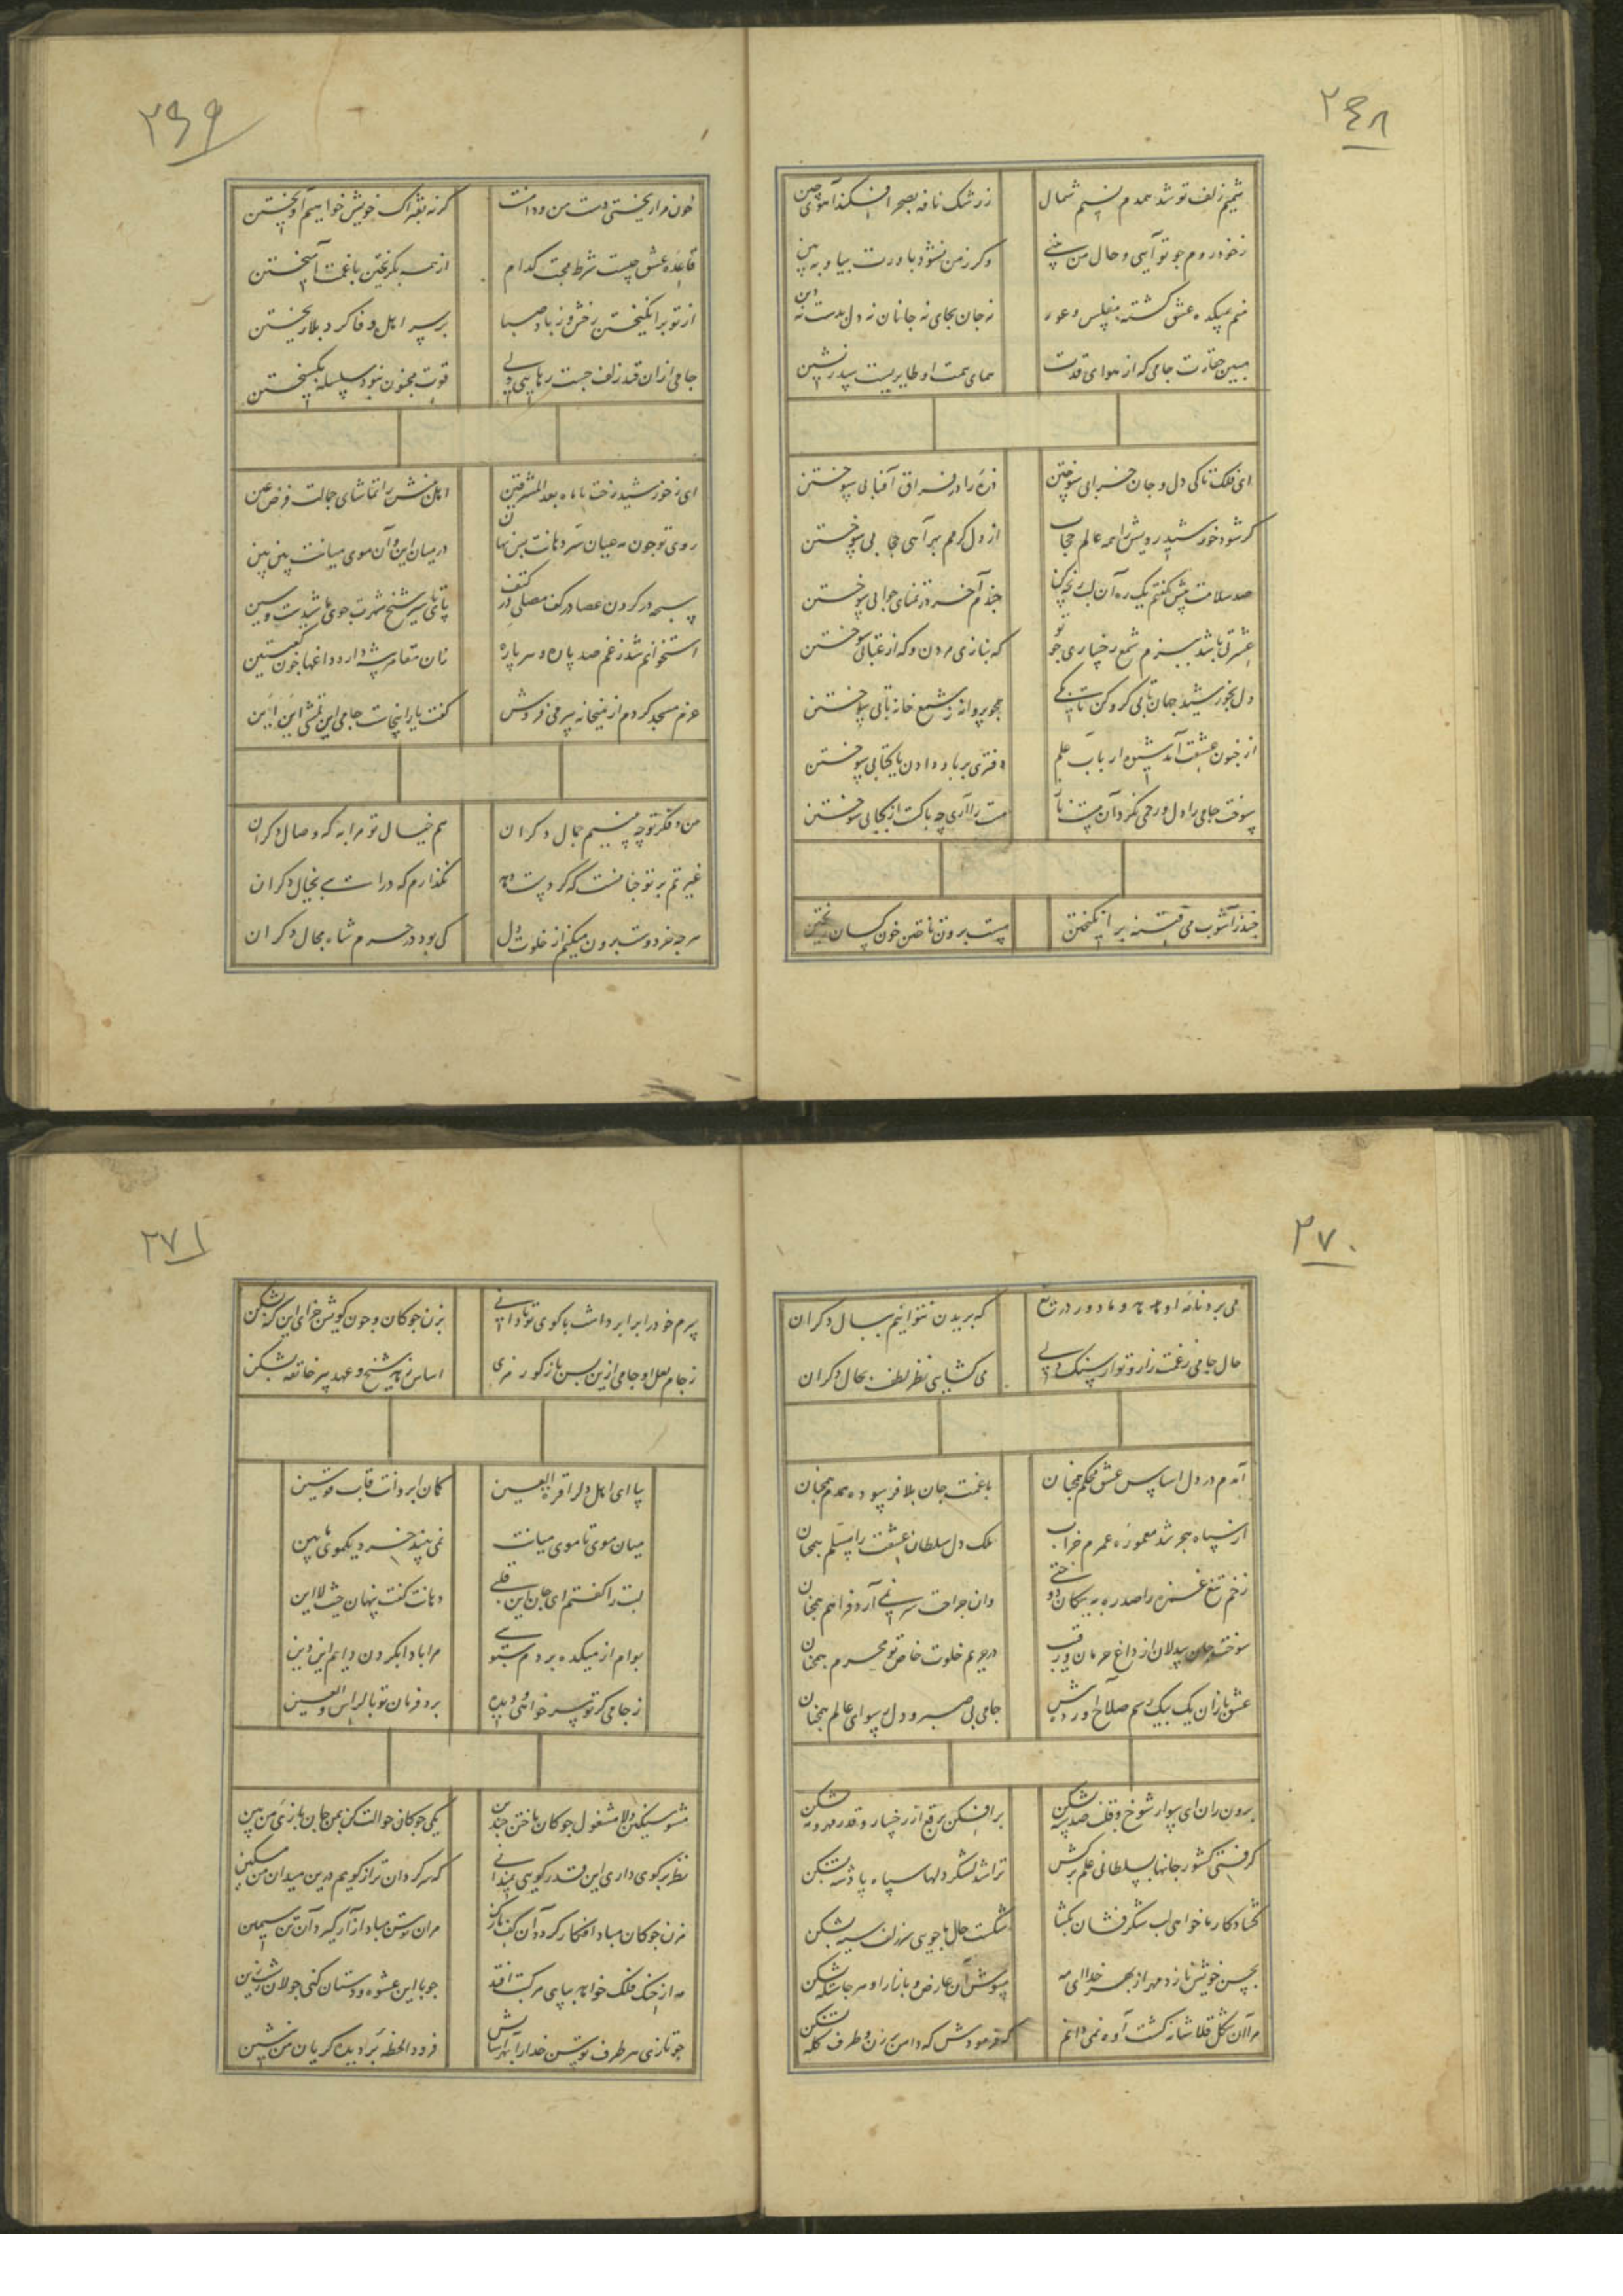 ۲۶۸
شمیم زلف تو شد همدم نسیم شمال
ز رشک نافه بصحرا فکند آهوی چین
ز خود روم چو تو آیی و حال من بینی
وگر ز من نشود باورت بیا و ببین
منم بمیکده عشق گشته مفلس و عور
نه جان بجای نه جانان نه دل بدست نه دین
مبین حقارت جامی که از هوای قدت
همای همت او طایریست سدره نشین
ای فلک تا کی دل و جان خرابی سوختن
ذره را در فراق آفتابی سوختن
گر شود خورشید رویش را همه عالم حجاب
از دل گرمم بهر آهی حجابی سوختن
صد سلامت بیش گفتم یک ره آن لب رنجه کن
چندم آخر در تمنای جوابی سوختن
عشرتی باشد ببزم شمع رخساری چو تو
گه بنازی مردن و گه از عتابی سوختن
دل بخورشید جهان تابی گرو کن تا بکی
همچو پروانه ز شمع خانه تابی سوختن
از جنون عشقت آمد شیوه ارباب علم
دفتری بر باد دادن یا کتابی سوختن
سوخت جامی را دل و رحمی نکرد آن مست ناز
مست را آری چه باکست از کبابی سوختن
چند ز آشوب می فتنه برانگیختن
مست برون تاختن خون کسان ریختن
۲۶۹
خون مرا ریختی دست من و دامنت
گر نه بفتراک خویش خواهیم آویختن
قاعده عشق چیست شرط محبت کدام
از همه بگریختن با غمت آمیختن
از تو برانگیختن رخش و ز باد صبا
بر سر اهل وفا گرد بلا ریختن
جامی از آن قید زلف جست رهایی ولی
قوت مجنون نبود سلسله بگسیختن
ای ز خورشید رخت تا ماه بعد المشرقین
اهل بینش را تماشای جمالت فرض عین
روی تو چون مه عیان سر دهانت بس نهان
در میان این و آن موی میانت بین بین
سبحه در گردن عصا در کف مصلی در کتف
پای تا سر شیخ شهرت جوی ما شیدست و شین
استخوانم شد ز غم صد پاره و هر پاره
زان مقامر پیشه دارد داغها چون کعبتین
عزم مسجد کردم از میخانه پیر می فروش
گفت یار اینجاست جامی این تمشی این این
من و فکر تو چه بینم جمال دگران
هم خیال تو مرا به که وصال دگران
غیرتم بر تو چنانست که گر دست دهد
نگذارم که درآیی بخیال دگران
هر چه خود دوست برون میکنم از خلوت دل
کی بود در حرم شاه مجال دگران
۲۷۰
که پریدن نتوانیم ببال دگران
حال جامی ز غمت زار و تو از سنگ دلی
می گشایی نظر لطف بحال دگران
آمدم در دل اساس عشق محکم همچنان
با غمت جان بلا فرسوده همدم همچنان
از سپاه هجر شد معموره عمرم خراب
ملک دل سلطان عشقت را مسلم همچنان
زخم تیغ غمزه را صد ره به پیکان دوختی
وان جراحت سر نمی آرد فراهم همچنان
سوخت جان بیدلان از داغ حرمان و رقیب
در حریم خلوت خاص تو محرم همچنان
عشق بازان یک بیک رسم صلاح آورد پیش
جامی بی صبر و دل رسوای عالم همچنان
برون ران ای سوار شوخ و قلب صد سپه بشکن
برافکن برقع از رخسار و قدر مهر و مه بشکن
گرفتی کشور جانها بسلطانی علم برکش
ترا شد لشکر دلها سپاه پادشه بشکن
گشاد کار ما خواهی لب شکرفشان بگشا
شکست حال ما جویی سر زلف سیه بشکن
بحسن خویش نازد مهر از بهر خدا ای مه
بپوش آن عارض و بازار او هر جاست بشکن
مرا آن شکل قلاشانه کشت آوه نمی دانم
که فرمودش که دامن بر زن و طرف کله بشکن
۲۷۱
سرم خود را برابر داشت با گوی تو تا دانی
بزن چوگان و چون گویش جزای این گنه بشکن
ز جام لعل او جامی ازین پس باز گو رمزی
اساس زهد شیخ و عهد پیر خانقه بشکن
بیا ای اهل دل را قرة العین
کمان ابروانت قاب قوسین
میان موی تا موی میانت
نمی بیند خرد یکموی مابین
لبت را گفتم ای جان این قلبی
دهانت گفت پنهان حیث لا این
بوام از میکده بردم سبویی
مرا بادا بگردن دایم این دین
ز جامی گر تو سر خواهی و دیده
برد فرمان تو بالراس والعین
مشو سنگین دلا مشغول چوگان باختن چندین
یکی چوگان حوالت کن بمن جان بازی من بین
نظر بر گوی داری این قدر گویی نمیدانی
که سرگردان تر از گویم درین میدان من مسکین
مزن چوگان مبادا افگار گردد آن کف نازک
مران توسن مباد آزار گیرد آن تن سیمین
مه از خنگ فلک خواهد بپای مرکبت افتد
چو با این عشوه و دستان کنی جولان ز پشت زین
چو تازی هر طرف توسن خدا را بهر آسایش
فرود آ لحظه بر دیده گریان من بنشین